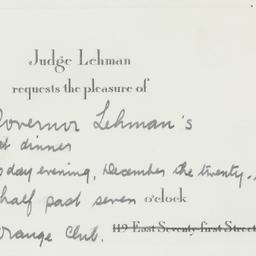 Judge Lehman
requests the pleasure of
Governor Lehman's
at dinner
day evening, December the twenty
half past seven o'clock
Orange Club. 119 East Seventy-first Street